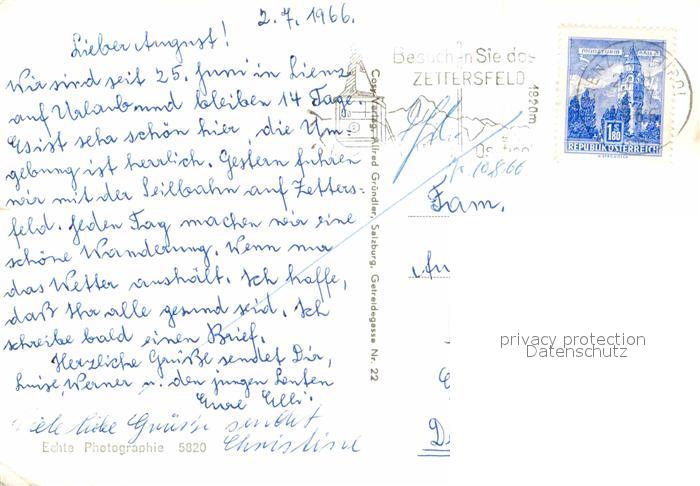 2.7.1966.
Lieber August!
Wir sind seit 25. Juni in Lienz
auf Urlaub und bleiben 14 Tage.
Es ist sehr schön hier die Um-
gebung ist herrlich. Gestern fuhren
wir mit der Seilbahn auf Zetters-
feld. Jeden Tag machen wir eine
schöne Wanderung. Wenn nur
das Wetter aushält. Ich hoffe,
daß Ihr alle gesund seid. Ich
schreibe bald einen Brief.
Herzliche Grüße sendet Dir,
Luise, Werner u. den jungen Leuten
Eure Elli.
Viele liebe Grüße sendet
Christine
Echte Photographie 5820
Cosy-Verlag, Alfred Gründler, Salzburg, Getreidegasse Nr. 22
Besuchen Sie das
ZETTERSFELD
1820m
10.8.66
1.80
REPUBLIK ÖSTERREICH
Fam.
An
privacy protection
Datenschutz